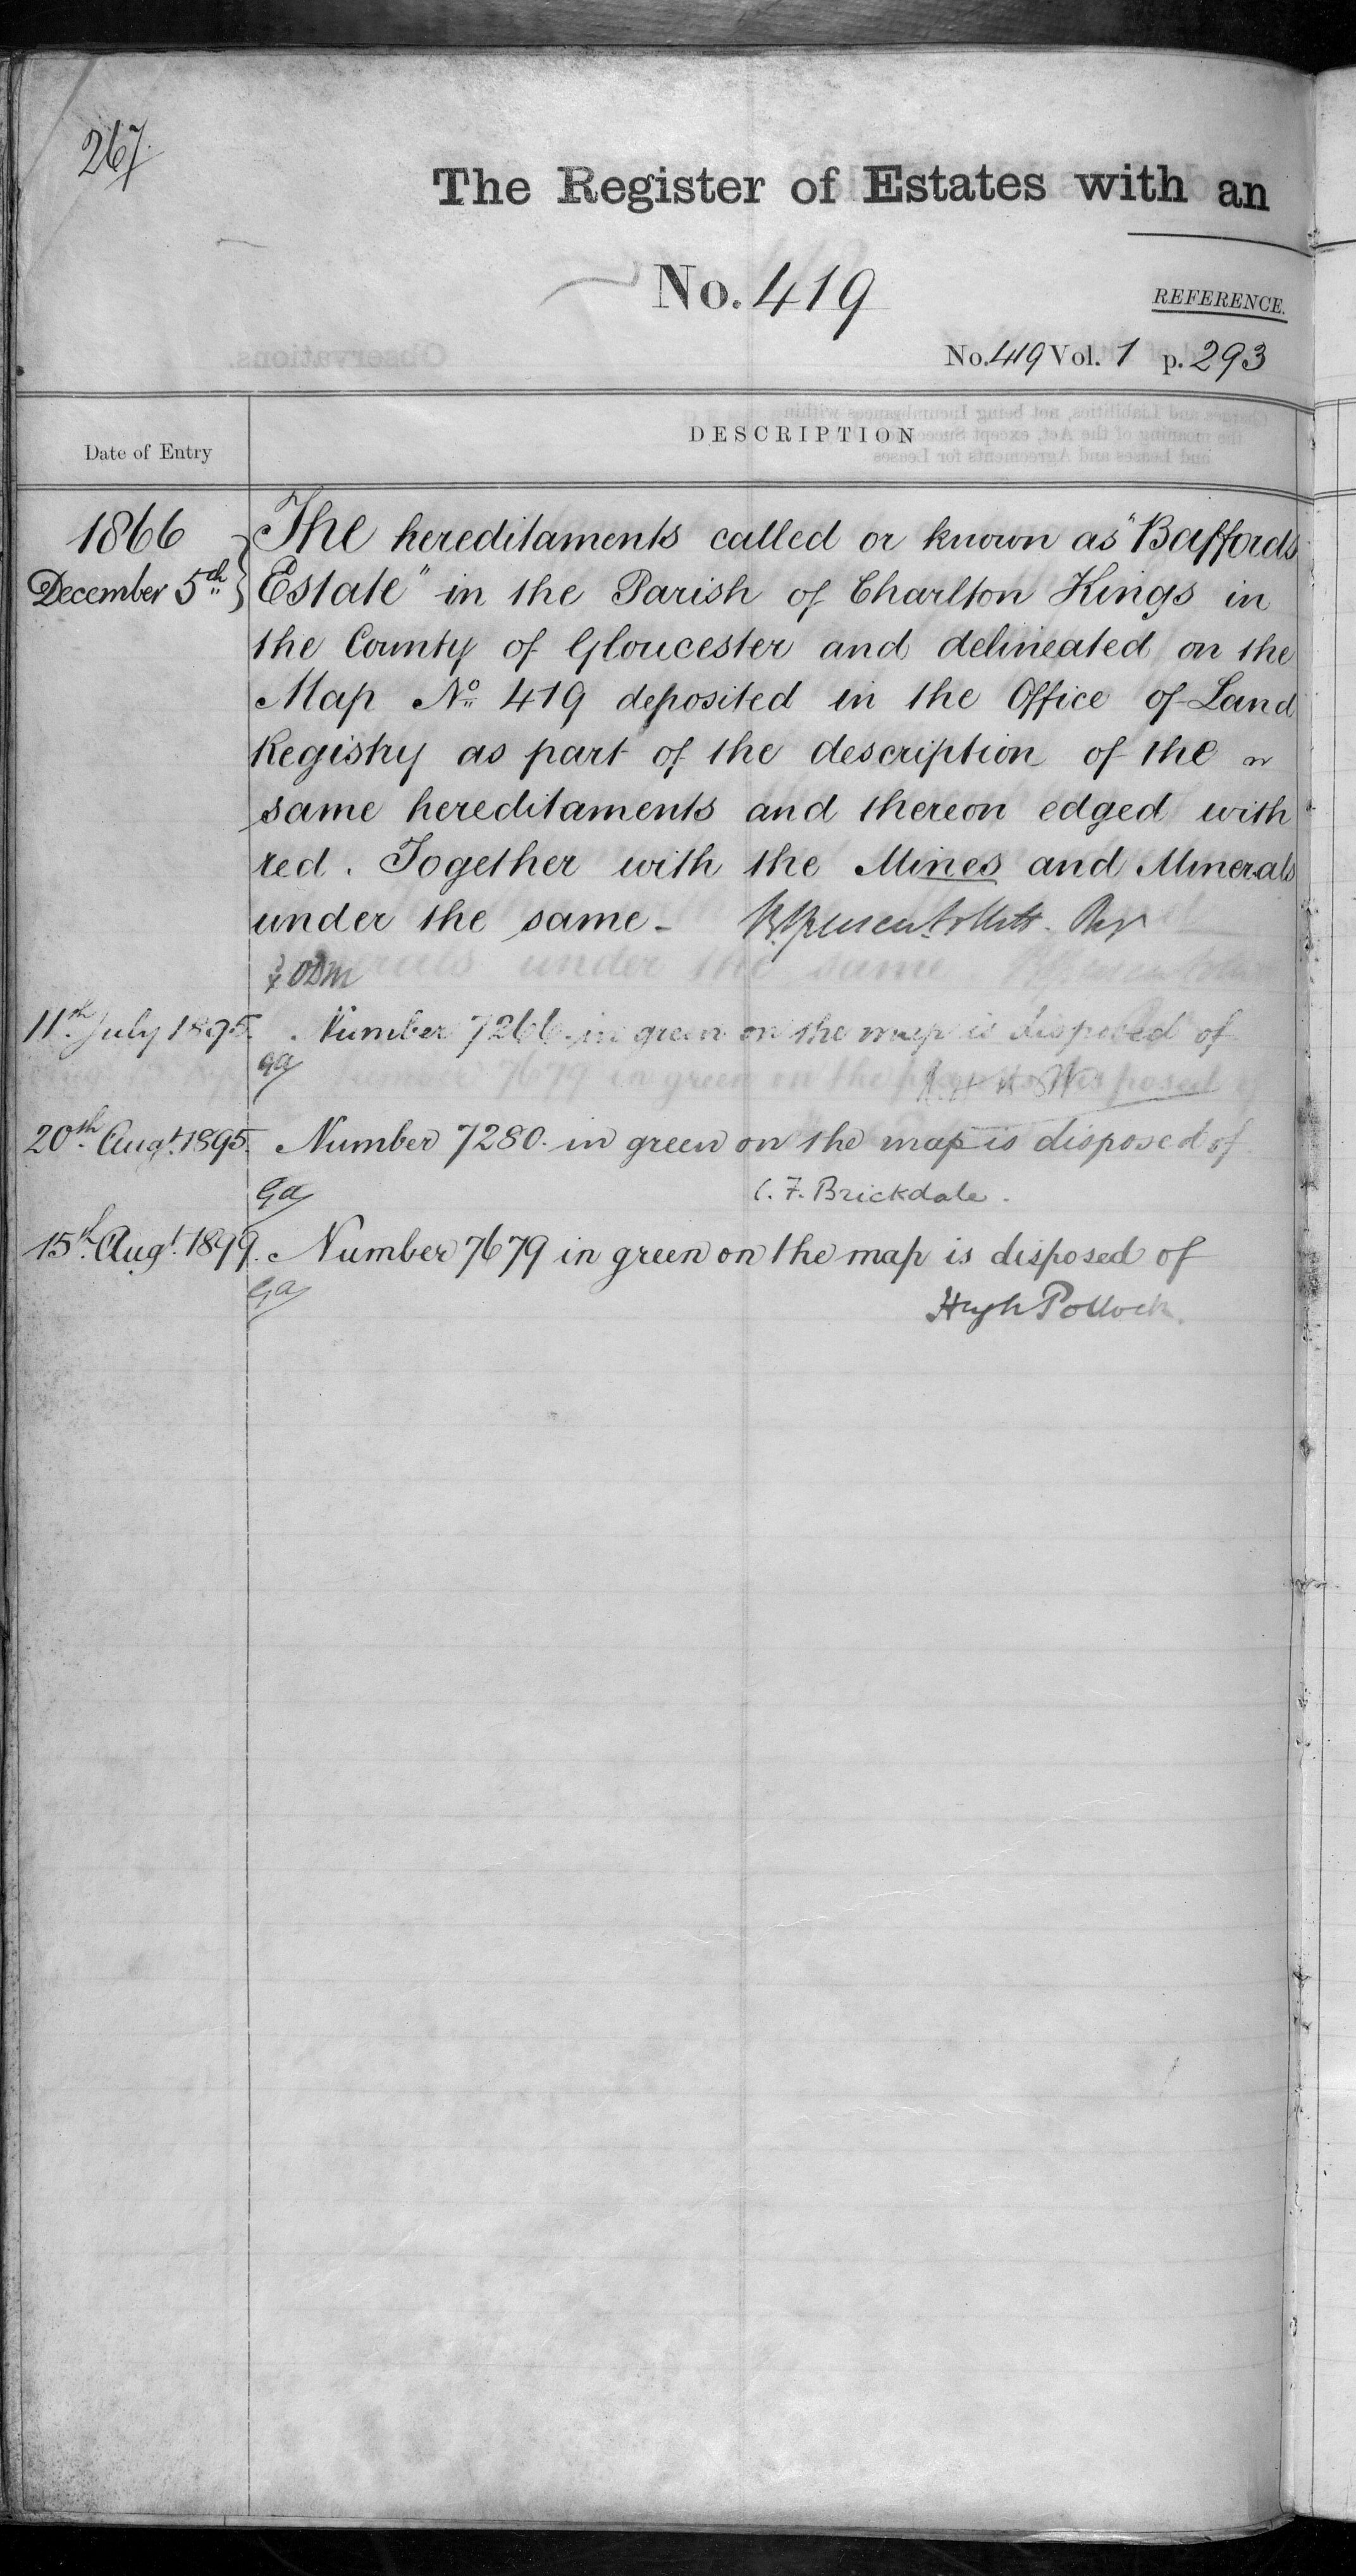 267.
The Register of Estates with an
No. 419
REFERENCE.
No. 419 Vol. 1 p. 293
Date of Entry
DESCRIPTION
1866
December 5th
The hereditaments called or known as "Baffords
Estate" in the Parish of Charlton Kings in
the County of Gloucester and delineated on the
Map No. 419 deposited in the Office of Land
Registry as part of the description of the
same hereditaments and thereon edged with
red. Together with the Mines and Minerals
under the same -
11th July 1895. Number 7266 in green on the map is disposed of
ga
20th Augt. 1895. Number 7280 in green on the map is disposed of
ga
C. F. Brickdale.
15th Augt. 1899. Number 7679 in green on the map is disposed of
ga
Hugh Pollock.